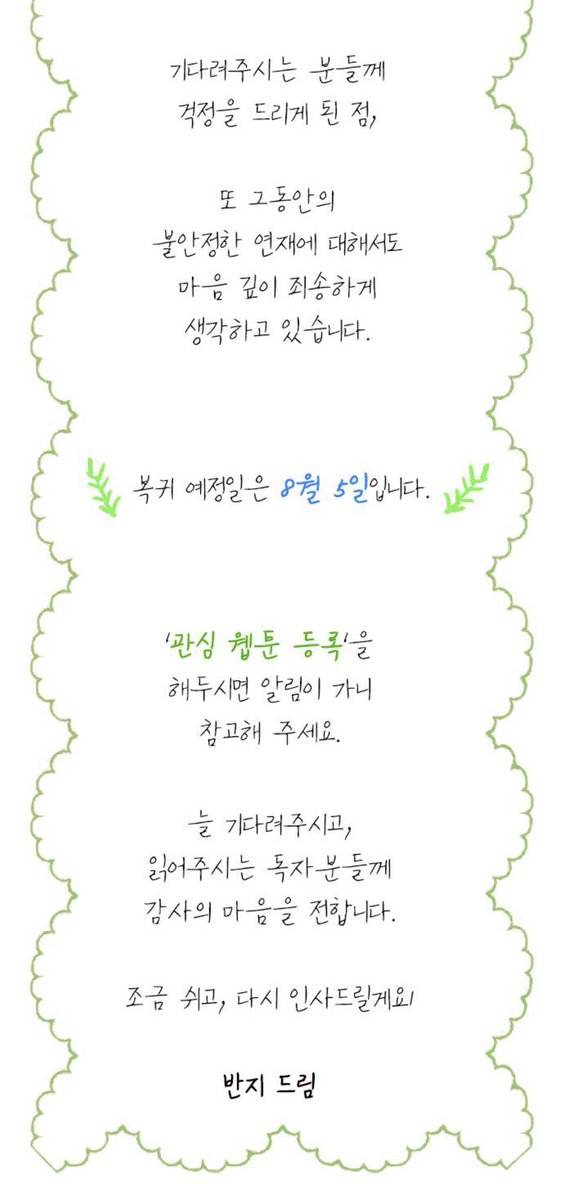 기다려주시는 분들께
걱정을 드리게 된 점,
또 그동안의
불안정한 연재에 대해서도
마음 깊이 죄송하게
생각하고 있습니다.
복귀 예정일은 8월 5일입니다.
'관심 웹툰 등록'을
해두시면 알림이 가니
참고해 주세요.
늘 기다려주시고,
읽어주시는 독자분들께
감사의 마음을 전합니다.
조금 쉬고, 다시 인사드릴게요!
반지 드림